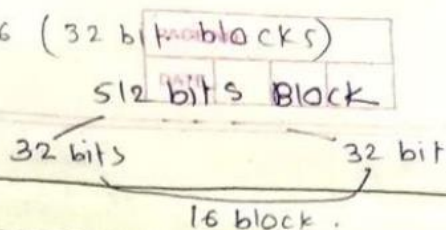 6 (32 bit blocks)
512 bits Block
32 bits 32 bit
16 block.